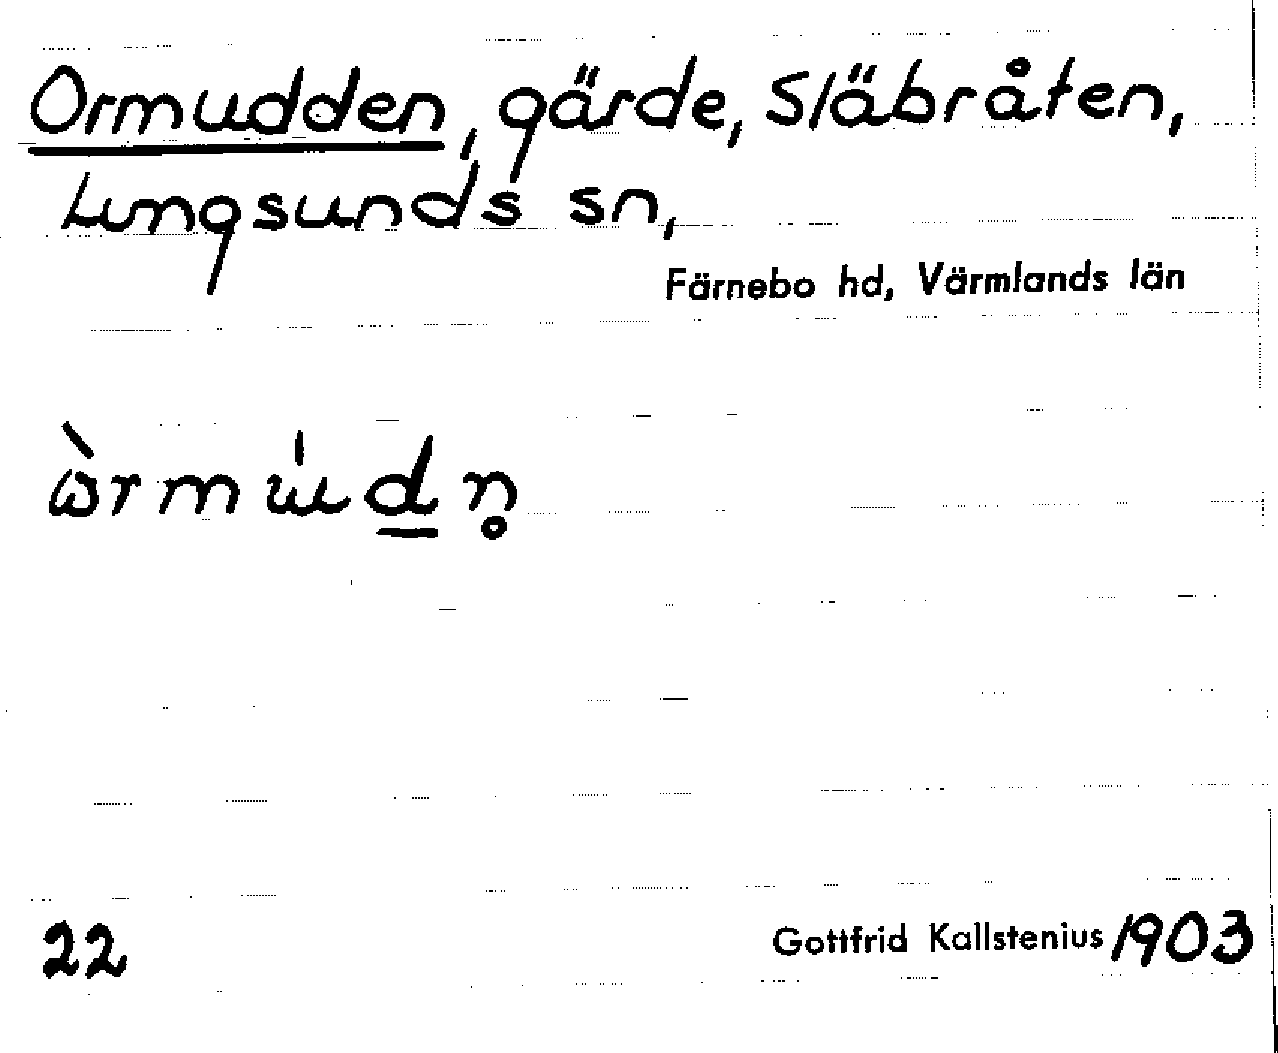 Ormudden, gärde, Släbråten,
Lungsunds sn,
Färnebo hd, Värmlands län
22
Gottfrid Kallstenius 1903